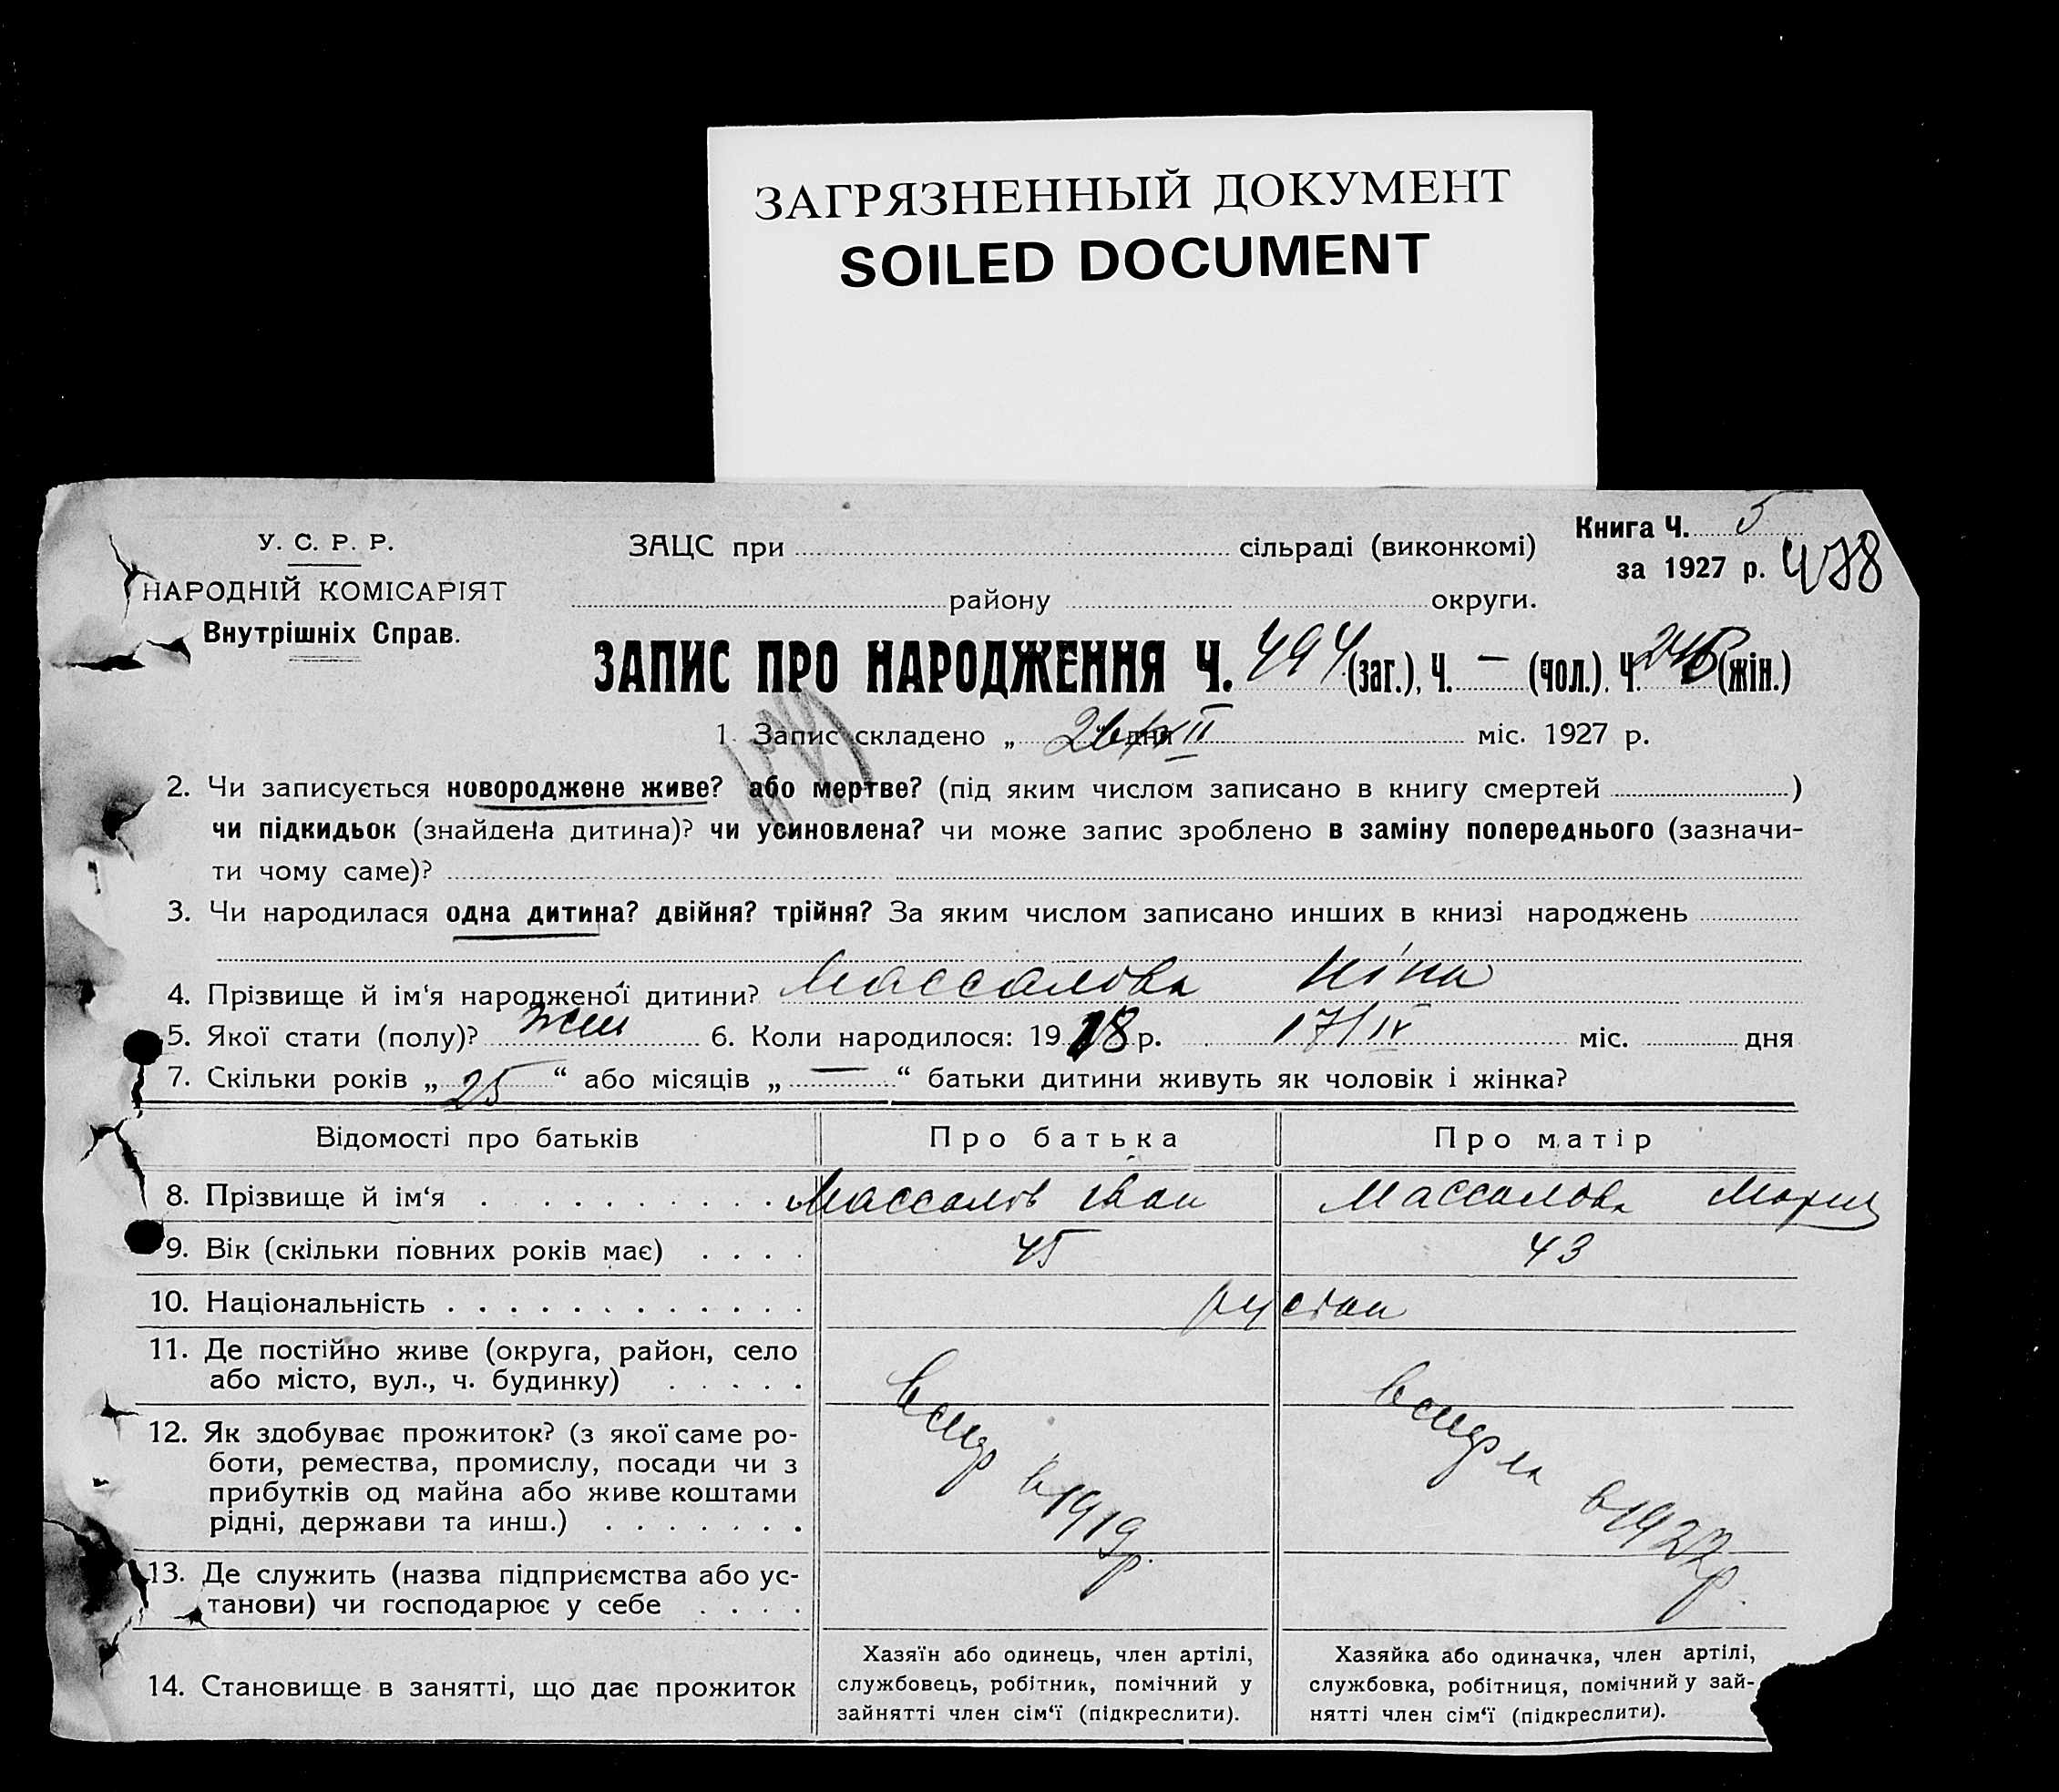 ЗАГРЯЗНЕННЫЙ ДОКУМЕНТ
SOILED DOCUMENT
У. С. Р. Р.
НАРОДНІЙ КОМІСАРІЯТ
Внутрішніх Справ.
ЗАЦС при сільраді (виконкомі)
району округи.
Книга Ч. 5
за 1927 р. 478
ЗАПИС ПРО НАРОДЖЕННЯ Ч. 494 (заг.), Ч. — (чол.), Ч. 246 (жін.)
1. Запис складено „ 26/XII дня міс. 1927 р.
2. Чи записується новороджене живе? або мертве? (під яким числом записано в книгу смертей )
чи підкидьок (знайдена дитина)? чи усиновлена? чи може запис зроблено в заміну попереднього (зазначи-
ти чому саме)?
3. Чи народилася одна дитина? двійня? трійня? За яким числом записано инших в книзі народжень
4. Прізвище й ім‘я народженої дитини? Массалова Ніна
5. Якої стати (полу)? жін 6. Коли народилося: 1918 р. 17/IV міс. дня
7. Скільки років „ 25 “ або місяців „ — “ батьки дитини живуть як чоловік і жінка?
Відомості про батьків Про батька Про матір
8. Прізвище й ім‘я Массалов Іван Массалова Мария
9. Вік (скільки повних років має) 45 43
10. Національність
11. Де постійно живе (округа, район, село
або місто, вул., ч. будинку)
12. Як здобуває прожиток? (з якої саме ро-
боти, ремества, промислу, посади чи з
прибутків од майна або живе коштами
рідні, держави та инш.)
в 1919 р. в 1927 р.
13. Де служить (назва підприємства або ус-
танови) чи господарює у себе
14. Становище в занятті, що дає прожиток
Хазяїн або одинець, член артілі,
службовець, робітник, помічний у
зайнятті член сім‘ї (підкреслити).
Хазяйка або одиначка, член артілі,
службовка, робітниця, помічний у зай-
нятті член сім‘ї (підкреслити).